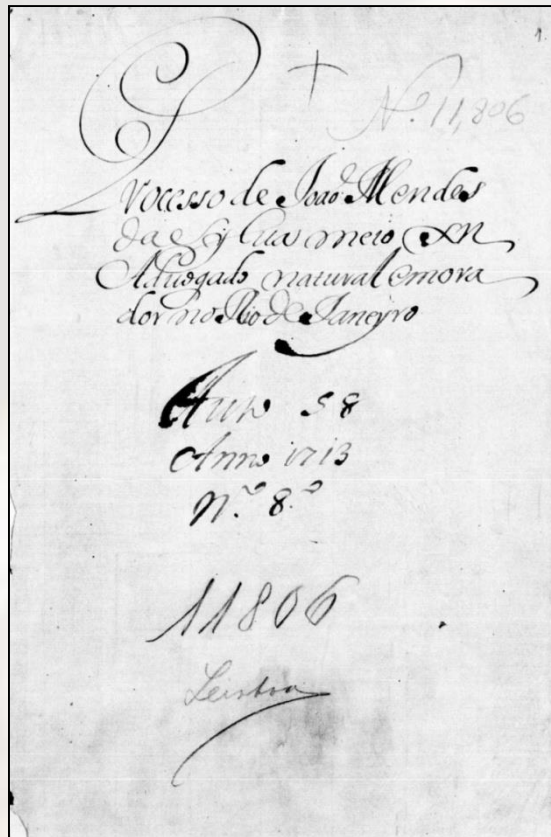 1.
Nº 11,806
Processo de Joaõ Mendes
da Sylva meio XN
Aduogado natural e mora
dor no Rio de Janeyro
Auto 58
Anno 1713
N.º 8.º
11806
Lisboa